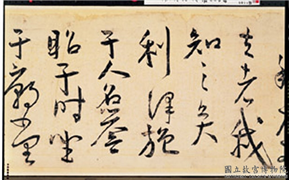 夫者我
知之矣
利澤施
于人名聲
昭于時坐
于廟
國立故宮博物院